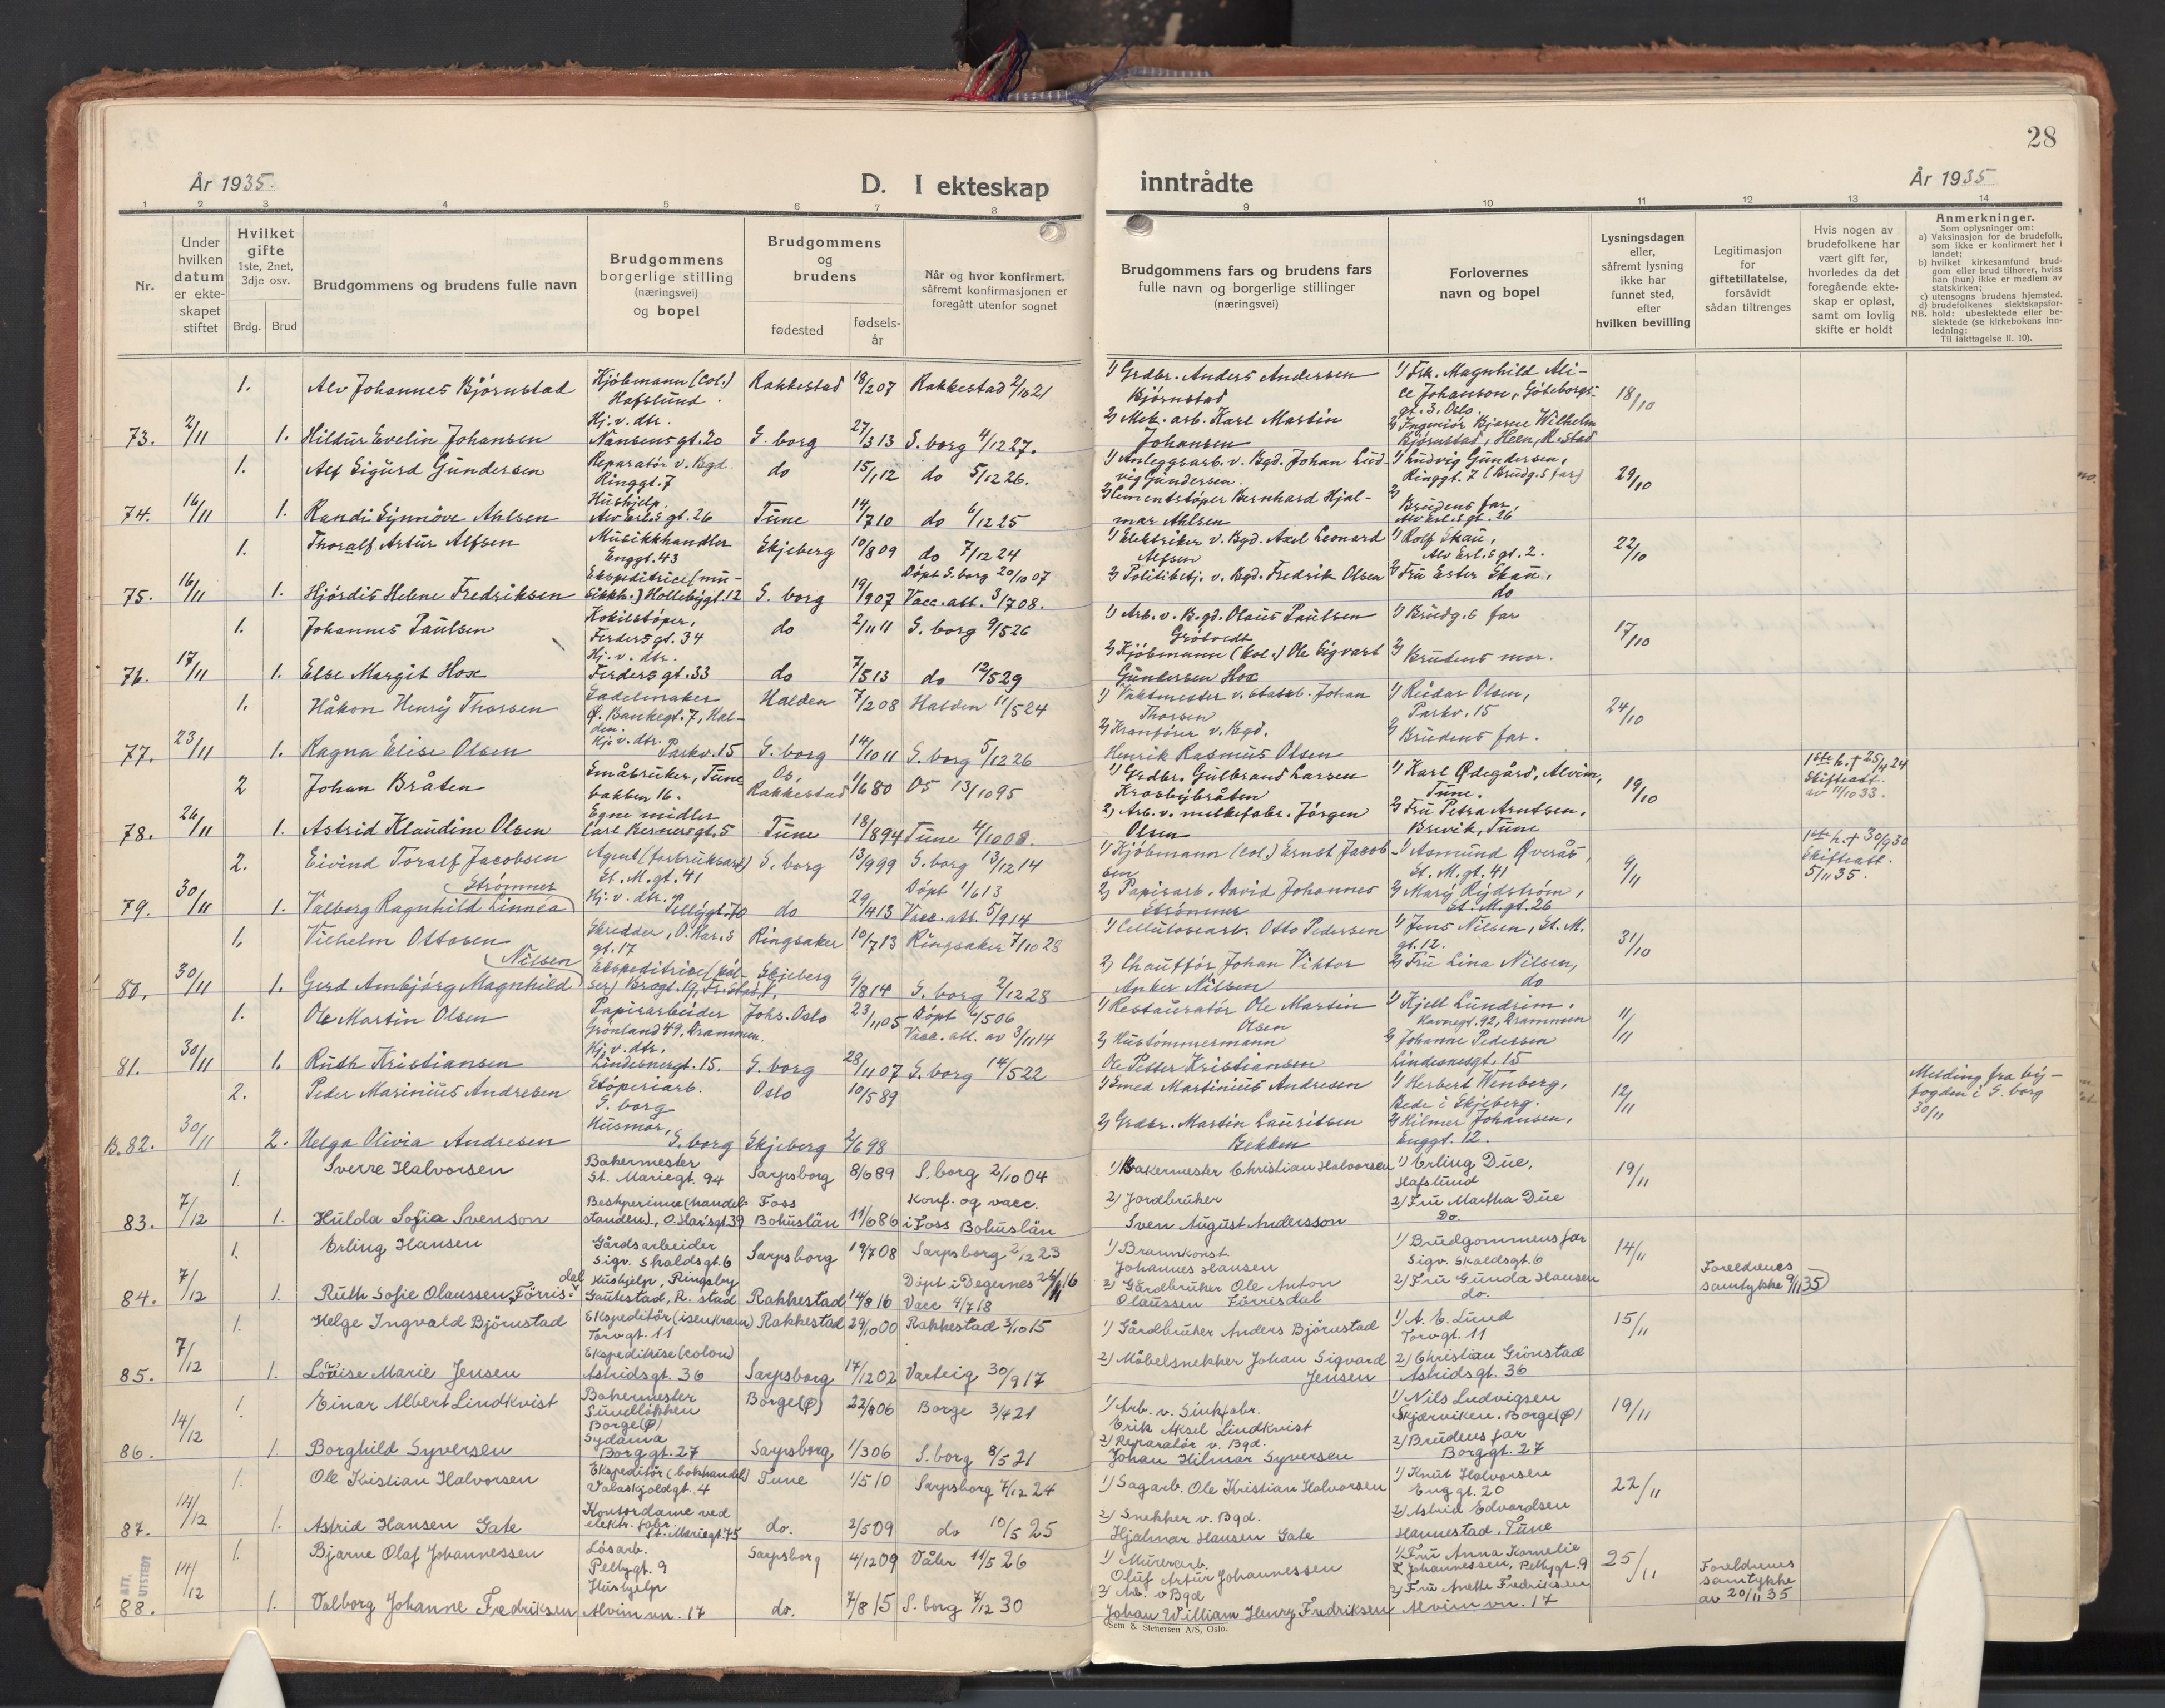 28
År 1935.
D. I ekteskap
inntrådte
År 1935
1 2 3 4 5 6 7 8 9 10 11 12 13 14
Nr.
Under hvilken datum er ekteskapet stiftet
Hvilket gifte
1ste, 2net, 3dje osv.
Brdg. Brud
Brudgommens og brudens fulle navn
Brudgommens borgerlige stilling (næringsvei) og bopel
Brudgommens og brudens
fødested
fødselsår
Når og hvor konfirmert, såfremt konfirmasjonen er foregått utenfor sognet
Brudgommens fars og brudens fars fulle navn og borgerlige stillinger (næringsvei)
Forlovernes navn og bopel
Lysningsdagen eller, såfremt lysning ikke har funnet sted, efter hvilken bevilling
Legitimasjon for giftetillatelse, forsåvidt sådan tiltrenges
Hvis nogen av brudefolkene har vært gift før, hvorledes da det foregående ekteskap er opløst, samt om lovlig skifte er holdt
Anmerkninger.
Som oplysninger om:
a) Vaksinasjon for de brudefolk, som ikke er konfirmert her i landet;
b) hvilket kirkesamfund brudgom eller brud tilhører, hviss han (hun) ikke er medlem av statskirken;
c) utensogns brudens hjemsted.
d) brudefolkenes slektskapsforhold: ubeslektede eller beslektede (se kirkebokens innledning:
NB. Til iakttagelse II. 10).
1. Alv Johannes Bjørnstad Kjöbmann (Col.) Hafslund. Rakkestad 18/2 07 Rakkestad 2/10 21 1) Grdbr. Anders Andersen Bjørnstad 1) Frk. Magnhild Alice Johanson, Göteborggt. 3, Oslo. 18/10
73. 2/11 1. Hildur Evelin Johansen Hj. v. dtr. Nansens gt. 20 S. borg 27/3 13 S. borg 4/12 27. 2) Mek. arb. Karl Martin Johansen 2) Ingeniör Bjarne Wilhelm Bjørnstad, Heen, R.stad
1. Alf Sigurd Gundersen Reparatör v. Bgd. Ringgt. 7 do 15/1 12 do 5/12 26. 1) Anleggsarb. v. Bgd. Johan Ludvig Gundersen. 1) Ludvig Gundersen, Ringgt. 7 (Brudg.s far) 29/10
74. 16/11 1. Randi Synnöve Ahlsen Hushjelp Alv Erl.s gt. 26 Tune 14/7 10 do 6/12 25 2) Cementstöper Bernhard Hjalmar Ahlsen 2) Brudens far, Alv Erl.s gt. 26
1. Thoralf Artur Alfsen Musikkhandler Enggt. 43 Skjeberg 10/8 09 do 7/12 24 1) Elektriker v. Bgd. Axel Leonard Alfsen 1) Rolf Skau, Alv Erl.s gt. 2. 22/10
75. 16/11 1. Hjördis Helene Fredriksen Ekspeditrice (musikkh.) Hollebygt. 12 S. borg 19/9 07 Döpt S. borg 20/10 07 Vacc. att. 3/7 08. 2) Politibetj. v. Bgd. Fredrik Olsen 2) Fru Ester Skau, do
1. Johannes Paulsen Kokilstöper, Ferders gt. 34 do 2/11 11 S. borg 9/5 26 1) Arb. v. Bgd. Olaus Paulsen Grötvedt 1) Brudg.s far 17/10
76. 17/11 1. Else Margit Hox Hj. v. dtr. Ferders gt. 33 do 7/5 13 do 12/5 29 2) Kjöbmann (kol.) Ole Sigvart Gundersen Hox 2) Brudens mor.
1. Håkon Henry Thorsen Sadelmaker Ø. Bankegt. 7, Halden. Halden 7/2 08 Halden 11/5 24 1) Vaktmester v. statsb. Johan Thorsen 1) Reidar Olsen, Parkv. 15 24/10
77. 23/11 1. Ragna Elise Olsen Hj. v. dtr. Parkv. 15 S. borg 14/10 11 S. borg 5/12 26 2) Kranförer v. Bgd. Henrik Rasmus Olsen 2) Brudens far.
2 Johan Bråten Småbruker, Tunebakken 16. Os, Rakkestad 1/6 80 Os 13/10 95 1) Grdbr. Gulbrand Larsen Krosbybråten 1) Karl Ødegård, Alvim, Tune. 19/10 1ste h. † 25/4 24 Skifteatt. av 11/10 33.
78. 26/11 1. Astrid Klaudine Olsen Egne midler Carl Berners gt. 5 Tune 18/8 94 Tune 4/10 08. 2) Arb. v. melkefabr. Jörgen Olsen 2) Fru Petra Arntsen, Brevik, Tune
2. Eivind Toralf Jacobsen Agent (forbruksart.) St. M. gt. 41 S. borg 13/9 99 S. borg 13/12 14 1) Kjöbmann (Col.) Ernst Jacobsen 1) Asmund Øverås, St. M. gt. 41 9/11 1ste h. † 30/9 30 Skifteatt. 5/11 35.
79. 30/11 1. Valborg Ragnhild Linnéa Strömner Hj. v. dtr. Pellygt. 70 do 29/4 13 Döpt 1/6 13 Vacc. att. 5/9 14 2) Papirarb. David Johannes Strömner 2) Mary Rydström, St. M. gt. 26
1. Vilhelm Ottosen Skredder, O. Har.s gt. 17 Ringsaker 10/7 13 Ringsaker 7/10 28 1) Cellulosearb. Otto Pedersen 1) Jens Nilsen, St. M. gt. 12. 31/10
80. 30/11 1. Gerd Ambjörg Magnhild Nilsen Skjeberg 9/8 14 S. borg 2/12 28 2) Chaufför Johan Viktor Anker Nilsen 2) Fru Lina Nilsen, do
1. Ole Martin Olsen Papirarbeider Grönland 49, Drammen. Johs. Oslo 23/11 05 Döpt 6/5 06 Vacc. att. av 3/11 14 1) Restauratör Ole Martin Olsen 1) Kjell Lundrim, Havnegt. 92, Drammen 11/11
81. 30/11 1. Ruth Kristiansen Hj. v. dtr. Lindesnesgt. 15. S. borg 28/11 07 S. borg 14/5 22 2) Hustömmermann Ole Petter Kristiansen 2) Johanne Pedersen Lindesnesgt. 15
2. Peder Marinius Andresen Stöperiarb. S. borg Oslo 10/5 89 1) Smed Martinius Andresen 1) Herbert Wenberg, Bede i Skjeberg. 12/11 Melding fra byfogden i S. borg 30/11
B. 82. 30/11 2. Helga Olivia Andresen Husmor, S. borg Skjeberg 2/6 98 2) Grdbr. Martin Lauritsen Bekken 2) Hilmer Johansen, Enggt. 12.
1. Sverre Halvorsen Bakermester St. Mariegt. 94 Sarpsborg 8/6 89 S. borg 2/10 04 1) Bakermester Christian Halvorsen 1) Erling Due, Hafslund 19/11
83. 7/12 1. Hulda Sofia Svenson Bestyrerinne (handelsstanden), O. Har.sgt. 39 Foss Bohuslän 11/6 86 Konf. og vacc. i Foss Bohuslän 2) Jordbruker Sven August Andersson 2) Fru Martha Due Do.
1. Erling Hansen Gårdsarbeider Sigv. Skaldsgt. 6 Sarpsborg 19/7 08 Sarpsborg 2/12 23 1) Brannkonst. Johannes Hansen 1) Brudgommens far Sigv. Skaldsgt. 6 14/11
84. 7/12 1. Ruth Sofie Olaussen Förrisdal Hushjelp, Ringsby Gautestad, R. stad Rakkestad 14/8 16 Döpt i Degernes 26/11 16 Vacc 4/7 18 2) Gårdbruker Ole Anton Olaussen Förrisdal 2) Fru Gunda Hansen do. Foreldrenes samtykke 9/11 35
1. Helge Ingvald Björnstad Ekspeditör (isenkram) Torvgt. 11 Rakkestad 29/10 00 Rakkestad 3/10 15 1) Gårdbruker Anders Björnstad 1) A. E. Lund Torvgt. 11 15/11
85. 7/12 1. Lovise Marie Jensen Ekspeditrise (colon) Astridsgt. 36 Sarpsborg 17/12 02 Varteig 30/9 17 2) Möbelsnekker Johan Sigvard Jensen 2) Christian Grönstad Astridsgt. 36
1. Einar Albert Lindkvist Bakermester Sundlökken Borge (Ø) Borge (Ø) 22/8 06 Borge 3/4 21 1) Arb. v. Sinkfabr. Erik Aksel Lindkvist 1) Nils Ludvigsen Skjærviken. Borge (Ø) 19/11
86. 14/12 1. Borghild Syversen Sydama Borggt. 27 Sarpsborg 1/3 06 S. borg 8/5 21 2) Reparatör v. Bgd. Johan Hilmar Syversen 2) Brudens far Borggt. 27
1. Ole Kristian Halvorsen Ekspeditör (bokhandel) Valaskjoldgt. 4 Tune 1/5 10 Sarpsborg 7/12 24 1) Sagarb. Ole Kristian Halvorsen 1) Knut Halvorsen Enggt. 20 22/11
87. 14/12 1. Astrid Hansen Gate Kontordame ved elektr. fabr. St. Mariegt. 75 do. 2/5 09 do 10/5 25 2) Snekker v. Bgd. Hjalmar Hansen Gate 2) Astrid Edvardsen Hannestad, Tune
1. Bjarne Olaf Johannessen Lösarb. Pellygt. 9 Sarpsborg 4/12 09 Våler 11/5 26 1) Murerarb. Oluf Artur Johannessen 1) Fru Anna Kornelie Johannessen, Pellygt. 9 25/11 Foreldrenes samtykke av 20/11 35
ATT. UTSTEDT
88. 14/12 1. Valborg Johanne Fredriksen Hushjelp Alvim vn. 17 do. 7/8 15 S. borg 7/12 30 2) Arb. v Bgd Johan William Henry Fredriksen 2) Fru Anette Fredriksen Alvim vn. 17
Sem & Stenersen A/S, Oslo.